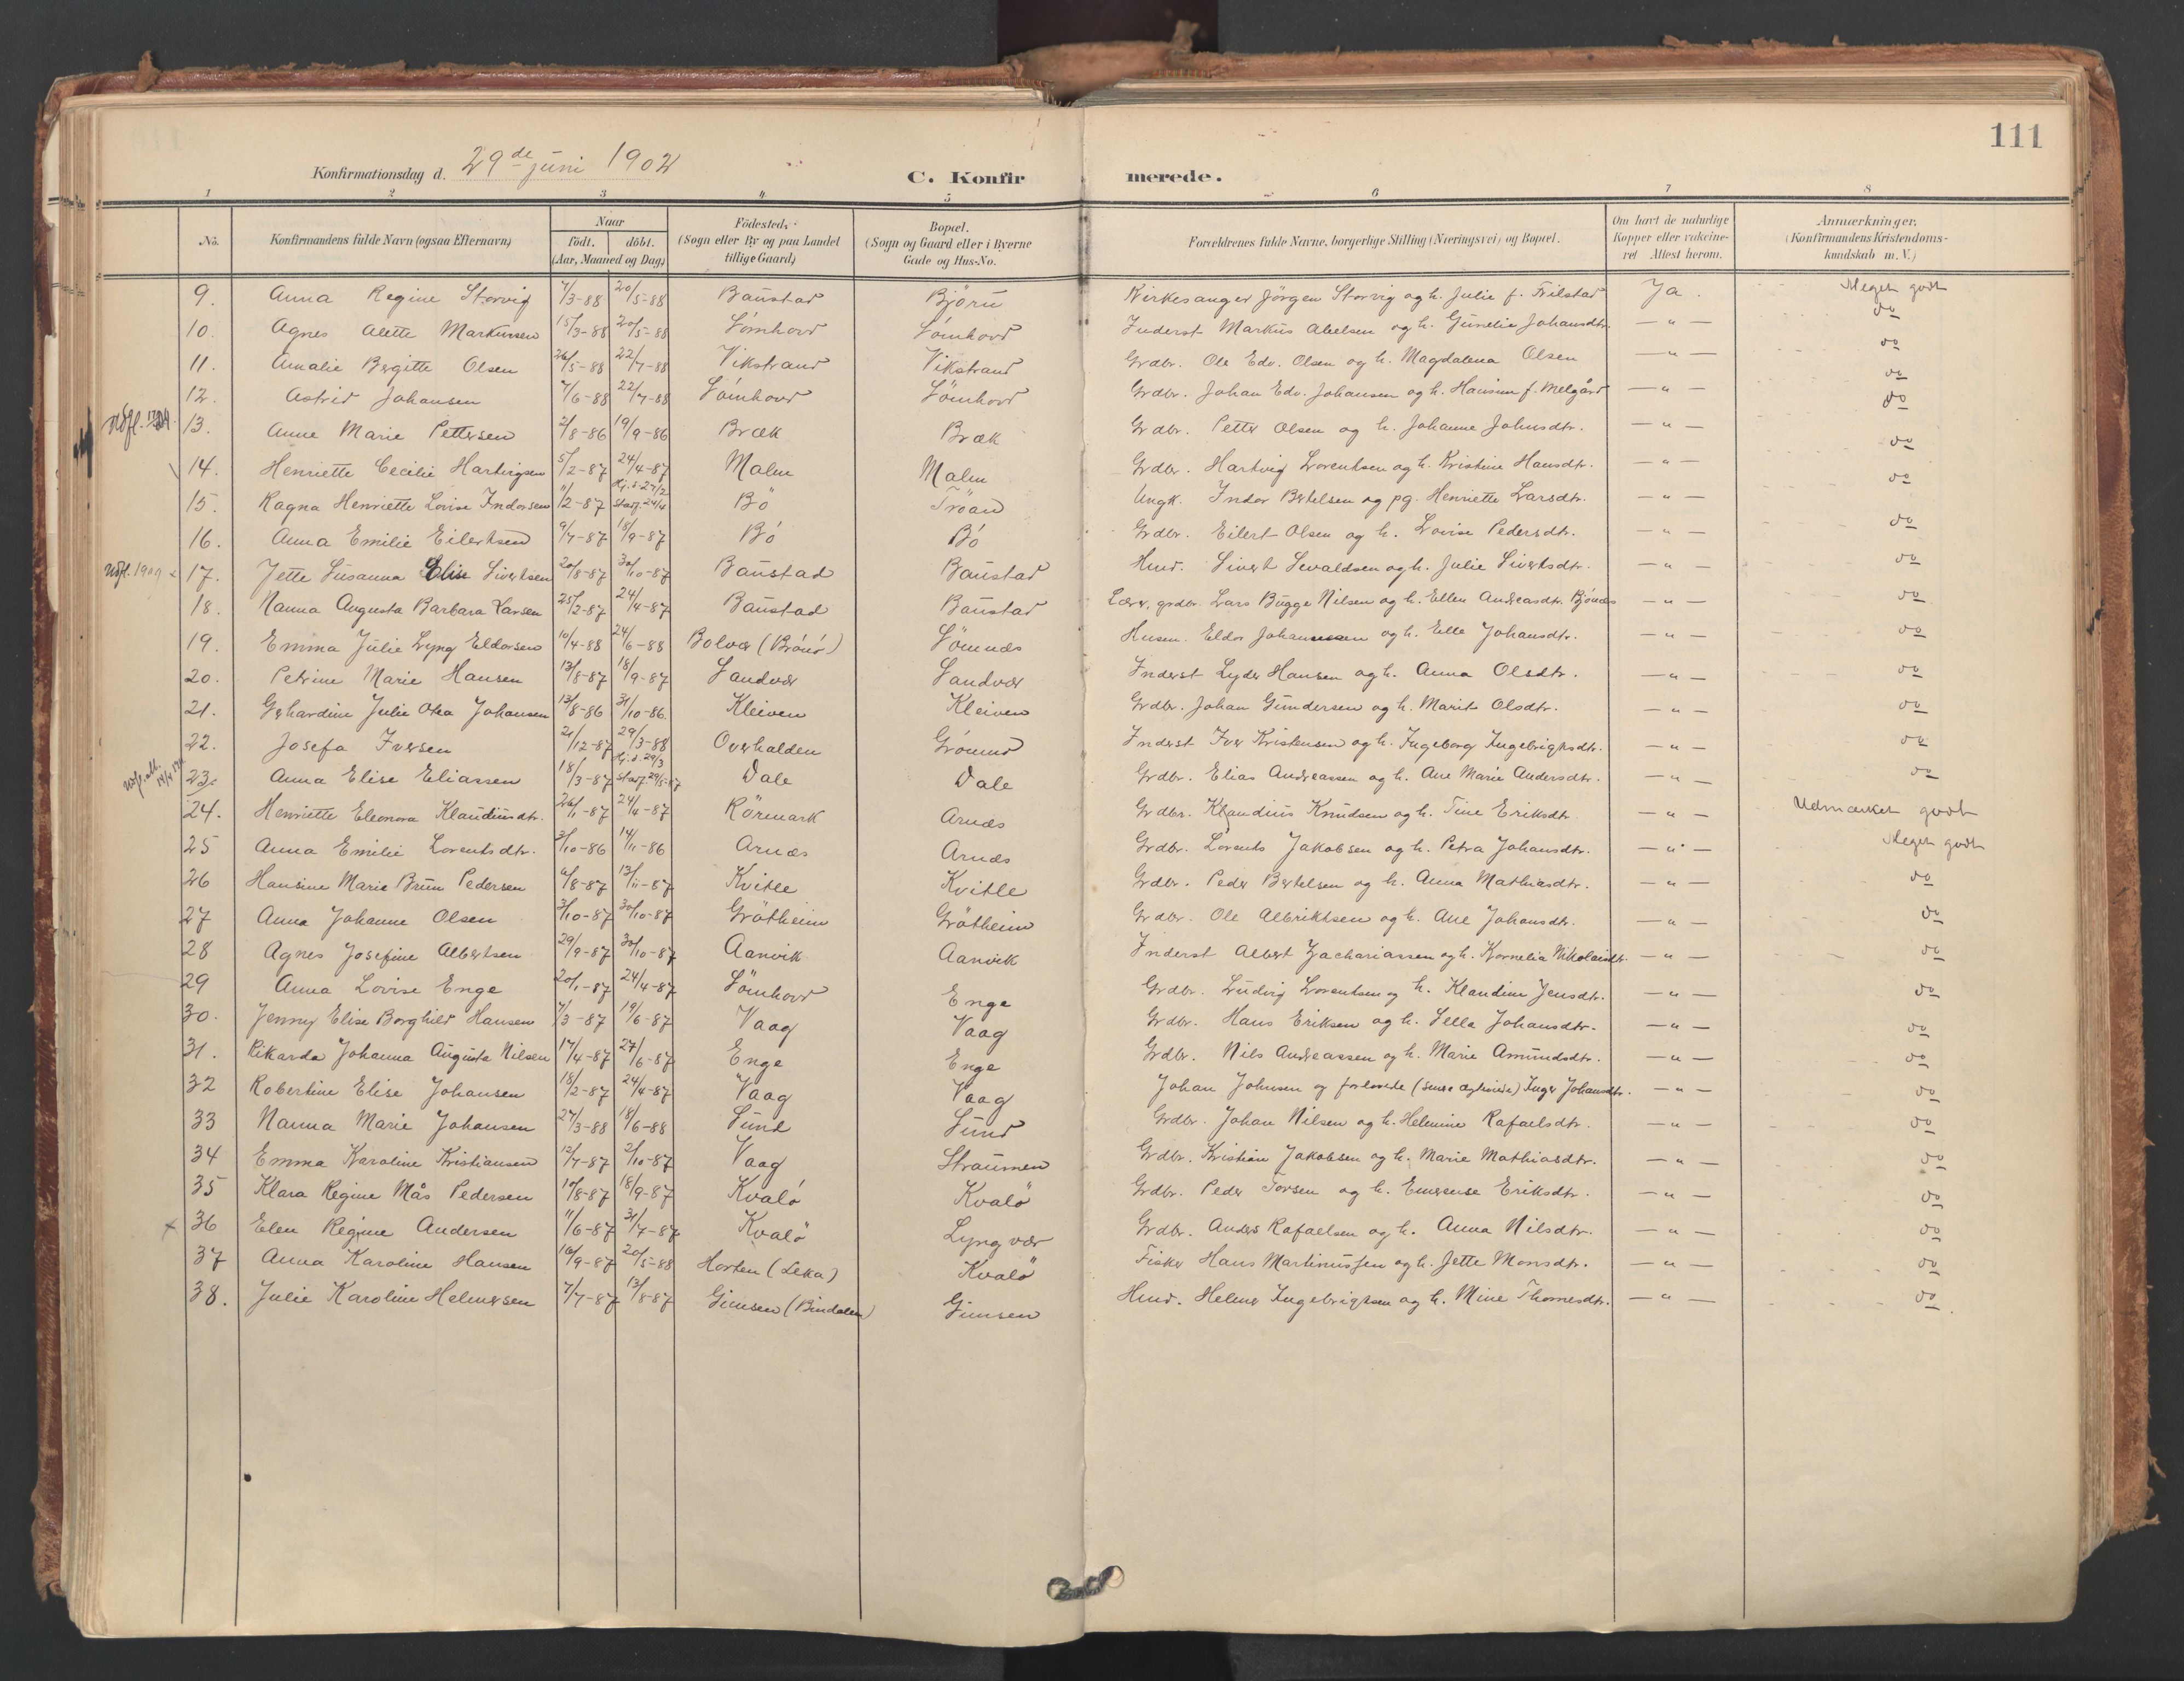 111
Konfirmationsdag d. 29de juni 1902
C. Konfirmerede.
1 2 3 4 5 6 7 8
No. Konfirmandens fulde Navn (ogsaa Efternavn) Naar födt. döbt. (Aar, Maaned og Dag) Födested. (Sogn eller By og paa Landet tillige Gaard) Bopæl. (Sogn og Gaard eller i Byerne Gade og Hus-No. Forældrenes fulde Navne, borgerlige Stilling (Næringsvei) og Bopæl. Om havt de naturlige Kopper eller vakcineret Attest herom. Anmærkninger. (Konfirmandens Kristendomskundskab m. V.)
9. Anna Regine Storvig 7/3-88 20/5-88 Baustad Björu Kirkesanger Jörgen Storvig og h. Julie f. Ja. Meget godt
10. Agnes Alette Markussen 15/3-88 20/5-88 Sömhovd Sömhovd Inderst Markus Abelsen og h. Gunelia Johansdtr. — " — do
11. Amalie Bergitte Olsen 26/5-88 22/7-88 Vikstrand Vikstrand Grdbr. Ole Edv. Olsen og h. Magdalena Olsen — " — do
12. Astrid Johansen 7/6-88 22/7-88 Sömhovd Sömhovd Grdbr. Johan Edv. Johansen og h. Hansine f. Melgård — " — do
Udfl. 13. Anne Marie Pettersen 2/8-86 19/9-86 Bræk Bræk Grdbr. Petter Olsen og h. Johanne Johnsdtr. — " — do
14. Henriette Cecilie Hartvigsen 5/2-87 24/4-87 Malm Malm Grdbr. Hartvig Lorentsen og h. Kristine Hansdtr. — " — do
15. Ragna Henriette Lovise Indorsen 11/2-87 Hj.d. 27/2 Stadf. 24/4 Bö Tröan Ungk. Indor Bertelsen og pg. Henriette Larsdtr. — " — do
16. Anna Emilie Eilertsen 9/7-87 18/9-87 Bö Bö Grdbr. Eilert Olsen og h. Lovise Pedersdtr. — " — do
Udfl. 1909 x 17. Jette Susanna Elise Sivertsen 20/8-87 30/10-87 Baustad Baustad Husd. Sivert Sevaldsen og h. Julie Sivertsdtr. — " — do
18. Nanna Augusta Barbara Larsen 25/2-87 24/4-87 Baustad Baustad Lærer, grdbr. Lars Bugge Nilsen og h. Ellen Andreasdtr. Björnes — " — do
19. Emma Julie Lyng Eldorsen 10/4-88 24/6-88 Bolvær (Brönö) Sömnæs Husm. Eldor Johannessen og h. Elle Johansdtr. — " — do
20. Petrine Marie Hansen 13/8-87 18/9-87 Sandvær Sandvær Inderst Lyder Hansen og h. Anna Olsdtr. — " — do
21. Gerhardine Julie Otea Johansen 13/8-86 31/10-86. Kleiven Kleiven Grdbr. Johan Gundersen og h. Marit Olsdtr. — " — do
22. Josefa Iversen 21/12-87 29/3-88 Overhalden Grönmo Inderst Iver Kristensen og h. Ingeborg Ingebrigtsdtr. — " — do
Udfl. att. 23. Anna Elise Eliassen 18/3-87 Hj.d. 29/3 Stadf. 29/5-87 Dale Dale Grdbr. Elias Andreassen og h. Ane Marie Andersdtr. — " — do
24. Henriette Eleonora Klaudiusdtr. 26/1-87 24/4-87 Rörmark Arnæs Grdbr. Klaudius Knudsen og h. Tine Eriksdtr — " — Udmærket godt
25 Anna Emilie Lorentsdtr. 3/10-86 14/11-86 Arnæs Arnæs Grdbr. Lorents Jakobsen og h. Petra Johansdtr. — " — Meget godt
26 Hansine Marie Brun Pedersen 6/8-87 13/11-87 Kvitle Kvitle Grdbr. Peder Bertelsen og h. Anna Mathiasdtr. — " — do
27 Anna Johanne Olsen 3/10-87 30/10-87 Grötheim Grötheim Grdbr. Ole Albriktsen og h. Ane Johansdtr. — " — do
28 Agnes Josefine Albertsen 29/9-87 30/10-87 Aanvik Aanvik Inderst Albert Zachariassen og h. Kornelia Nikolaisdtr. — " — do
29 Anna Lovise Enge 20/1-87 24/4-87 Sömhovd Enge Grdbr. Ludvig Lorentsen og h. Klaudine Jensdtr. — " — do
30. Jenny Elise Borghild Hansen 7/3-87 19/6-87 Vaag Vaag Grdbr. Hans Eriksen og h. Sella Johansdtr. — " — do
31. Rikarda Johanna Augusta Nilsen 17/4-87 27/6-87 Enge Enge Grdbr. Nils Andreassen og h. Marie Amundsdtr. — " — do
32 Robertine Elise Johansen 18/2-87 24/4-87 Vaag Vaag Johan Johnsen og forlovede (senere ægteviede) Inger Johansdtr. — " — do
33 Nanna Marie Johansen 27/3-88 18/6-88 Sund Sund Grdbr. Johan Nilsen og h. Helmine Rafaelsdtr. — " — do
34 Emma Karoline Kristiansen 12/7-87 2/10-87 Vaag Straumen Grdbr. Kristian Jakobsen og h. Marie Mathiasdtr. — " — do
35 Klara Regine Mås Pedersen 10/8-87 18/9-87 Kvalö Kvalö Grdbr. Peder Torsen og h. Emerense Eriksdtr. — " — do
x 36 Elen Regine Andersen 11/6-87 31/7-87 Kvalö Lyngvær Grdbr. Anders Rafaelsen og h. Anna Nilsdtr. — " — do
37 Anna Karoline Hansen 16/9-87 20/5-88 Horten (Leka) Kvalö Fisker Hans Martinussen og h. Jette Monsdtr. — " — do
38. Julie Karoline Helmersen 7/7-87 13/8-87 Gimsen (Bindalen) Gimsen Husd. Helmer Ingebrigtsen og h. Mine Thomesdtr. — " — do